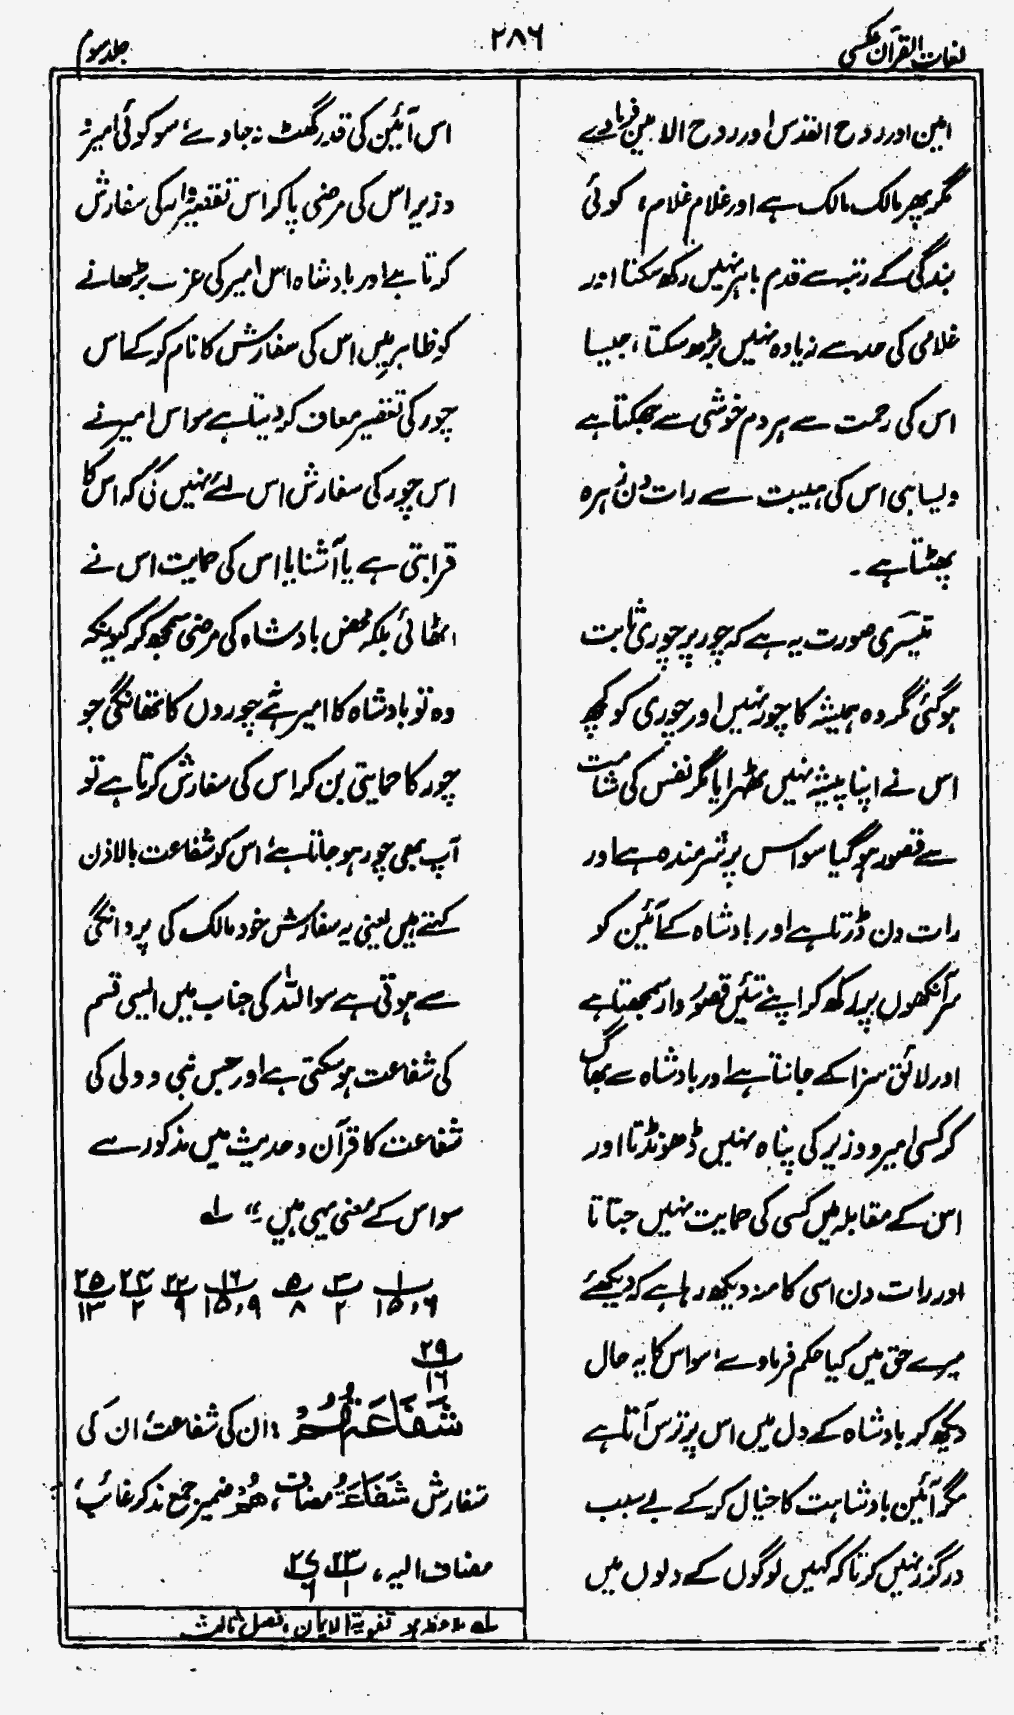 لغات القرآن عکسی
۲۸۶
جلد سوم
امین اور روح القدس اور روح الامین فرمادے
مگر پھر مالک مالک ہے اور غلام غلام، کوئی
بندگی کے رتبہ سے قدم باہر نہیں رکھ سکتا اور
غلامی کی حد سے زیادہ نہیں بڑھ سکتا، جیسا
اس کی رحمت سے ہر دم خوشی سے جھکتا ہے
ویسا ہی اس کی ہیبت سے رات دن زہرہ
پھٹتا ہے۔
تیسری صورت یہ ہے کہ چور پر چوری ثابت
ہو گئی مگر وہ ہمیشہ کا چور نہیں اور چوری کو کچھ
اس نے اپنا پیشہ نہیں ٹھہرایا مگر نفس کی شامت
سے قصور ہو گیا سو اس پر شرمندہ ہے اور
رات دن ڈرتا ہے اور بادشاہ کے آئین کو
سر آنکھوں پر رکھ کر اپنے تئیں قصور وار سمجھتا ہے
اور لائق سزا کے جانتا ہے اور بادشاہ سے بھاگ
کر کسی امیر و وزیر کی پناہ نہیں ڈھونڈتا اور
اس کے مقابلہ میں کسی کی حمایت نہیں جتاتا
اور رات دن اسی کا منہ دیکھ رہا ہے کہ دیکھئے
میرے حق میں کیا حکم فرمادے، سو اس کا یہ حال
دیکھ کر بادشاہ کے دل میں اس پر ترس آتا ہے
مگر آئین بادشاہت کا خیال کر کے بے سبب
درگزر نہیں کرتا کہ کہیں لوگوں کے دلوں میں
اس آئین کی قدر گھٹ نہ جاوے، سو کوئی امیر و
وزیر اس کی مرضی پا کر اس تقصیر وار کی سفارش
کرتا ہے اور بادشاہ اس امیر کی عزت بڑھانے
کو ظاہر میں اس کی سفارش کا نام کر کے اس
چور کی تقصیر معاف کر دیتا ہے سو اس امیر نے
اس چور کی سفارش اس لئے نہیں کی کہ اس کا
قرابتی ہے یا آشنا یا اس کی حمایت اس نے
اٹھائی بلکہ محض بادشاہ کی مرضی سمجھ کر کیونکہ
وہ تو بادشاہ کا امیر ہے نہ چوروں کا تھانگی جو
چور کا حمایتی بن کر اس کی سفارش کرتا ہے تو
آپ بھی چور ہو جاتا ہے، اس کو شفاعت بالاذن
کہتے ہیں یعنی یہ سفارش خود مالک کی پروانگی
سے ہوتی ہے سو اللہ کی جناب میں ایسی قسم
کی شفاعت ہو سکتی ہے اور جس نبی و ولی کی
شفاعت کا قرآن و حدیث میں مذکور ہے
سو اس کے معنی یہی ہیں۔" لہ
۱/۱۵،۶ ۳/۲ ۵/۸ ۱۶/۱۵،۹ ۲۲/۹ ۲۴/۲ ۲۵/۱۳
۲۹/۱۶
شَفَاعَتُهُمْ: ان کی شفاعت، ان کی
سفارش شَفَاعَةُ مضاف، هُمْ ضمیر جمع مذکر غائب،
مضاف الیہ، ۲۳/۱ ۲۷/۶
لہ ملاحظہ ہو تقویۃ الایمان، فصل ثالث